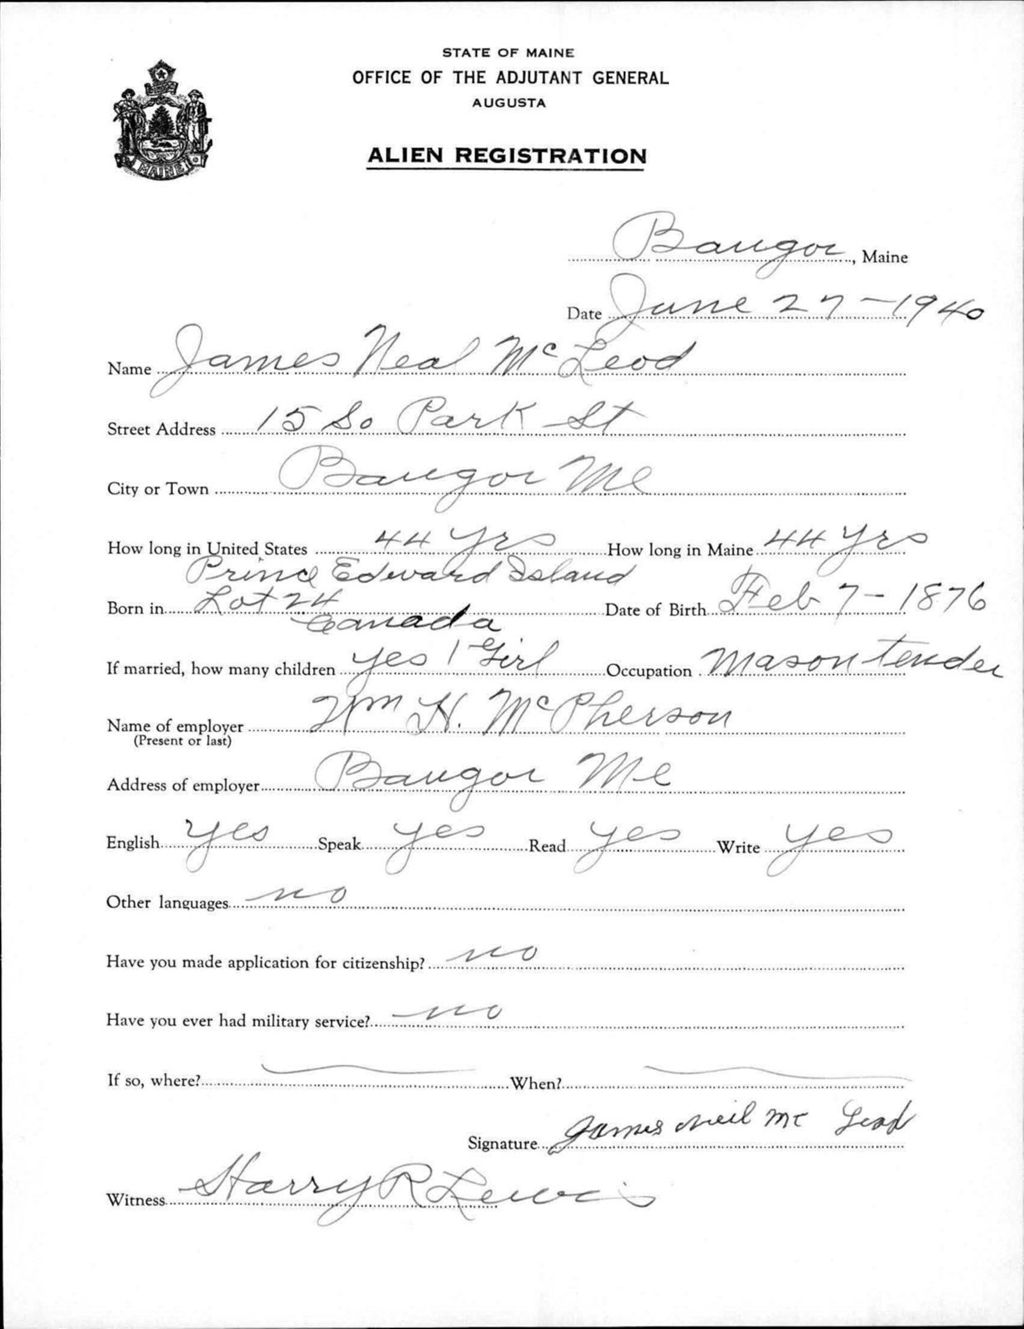 STATE OF MAINE
OFFICE OF THE ADJUTANT GENERAL
AUGUSTA
ALIEN REGISTRATION
MAINE
Bangor, Maine
Date June 27-1940
Name James Neal McLeod
Street Address 15 So Park St
City or Town Bangor Me
How long in United States 44 Yrs How long in Maine 44 Yrs
Prince Edward Island
Born in Lot 24 Date of Birth Feb 7-1876
Canada
If married, how many children yes 1 Girl Occupation Mason tender
Name of employer Wm H. McPherson
(Present or last)
Address of employer Bangor Me
English yes Speak yes Read yes Write yes
Other languages no
Have you made application for citizenship? no
Have you ever had military service? no
If so, where? When?
Signature James Neil Mc Leod
Witness Harry R Lewis